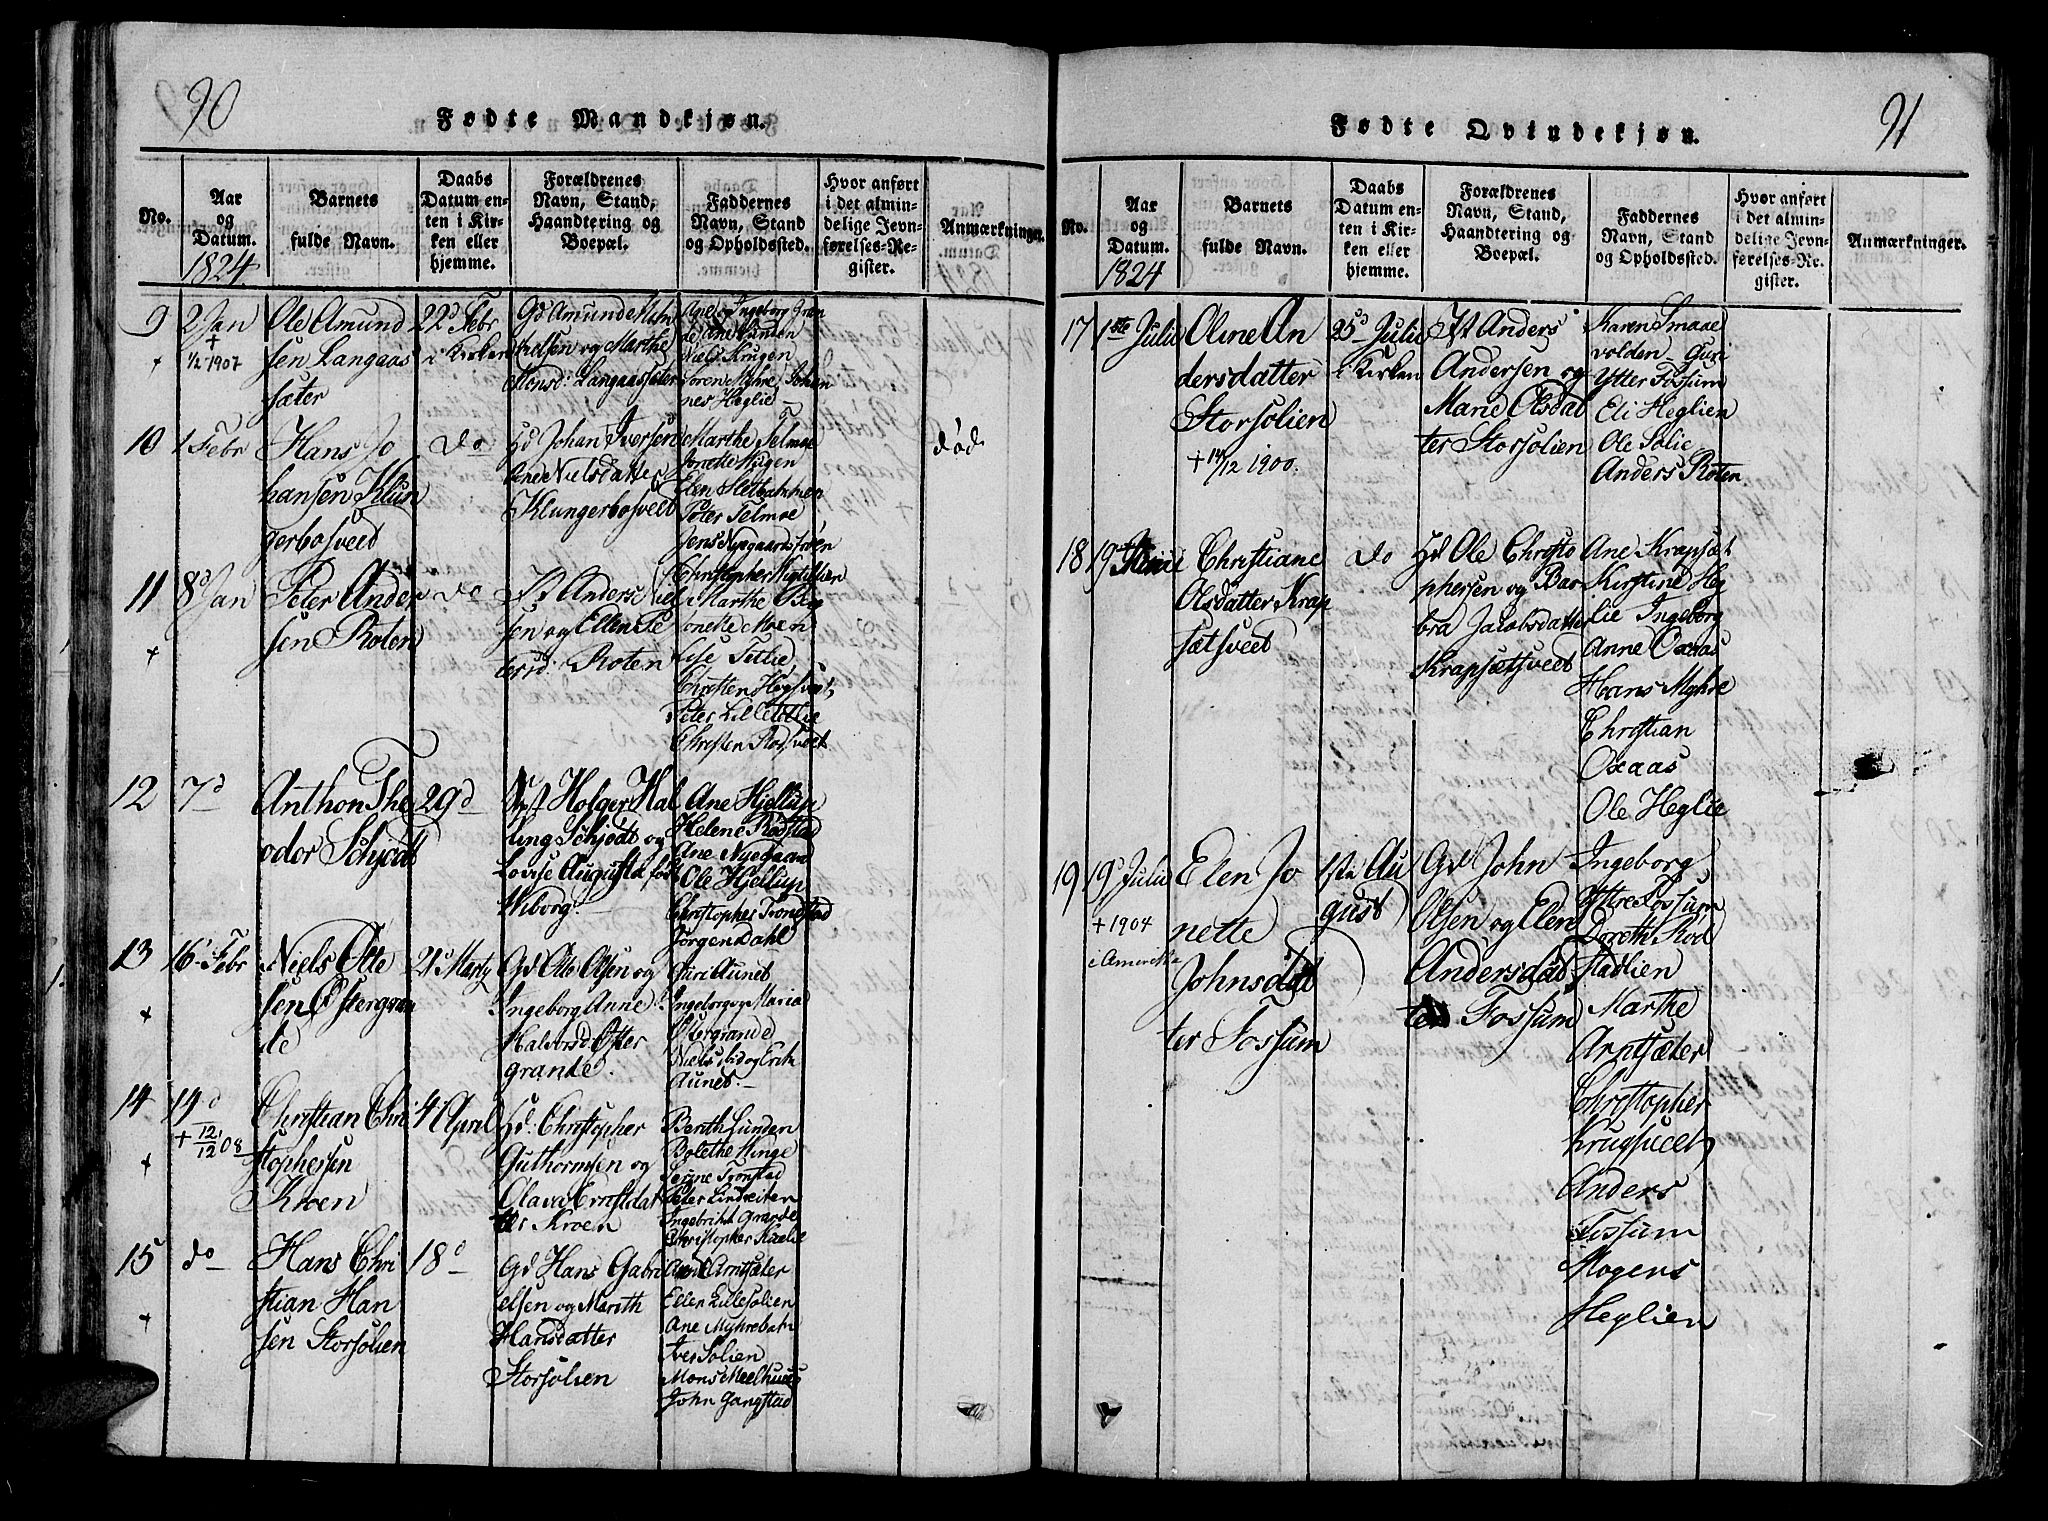 90
Fødte Mandkjøn.
No.
Aar
og
Datum.
1824.
Barnets
fulde Navn.
Daabs
Datum en-
ten i Kir-
ken eller
hjemme.
Forældrenes
Navn, Stand,
Haandtering og
Boepæl.
Faddernes
Navn, Stand
og Opholdssted.
Hvor anført
i det almin-
delige Jevn-
førelses-Re-
gister.
Anmærkninger.
9
2 Jan
+
1/2 1907
Ole Amund
sen Langaas
sæter
22d Febr
i Kirken
og Marthe
Monsd: Langaassæter
Niels Krugen
Soren Myhre, Johan
nes Heglie
10
1 Febr
Hans Jo
hansen Klun
gerbosveed
do
Johan Iversen
Ane Nielsdatter
Klungerbosveet
Marthe Telmoe
Jonette Mugen
Elen Sletbakmen
Peter Telmoe
død
11
+
8d Jan
Peter Ander
sen Roten
do
Anders Niel
sen og Ellen Pe
tersd: Roten
Marthe Berg
Jonette Moen
Lise Tetlie
Christen Hegsvet,
Peter Lilletetlie
Christen Rosveet
12
7d
Anthon The
odor Schjødt
29d
Holger Hal
ling Schjødt og
Lovise Augusta fød
Wiborg.
Ane Hjellup
Helene Rødstad
Ane Nyegaard
Ole Hjellup
Christopher Trondstad
Jørgen Dahl
13
+
16 Febr
Niels Otte
sen Østergran
de
21 Marty
Gd Otte Olsen og
Ingeborg Anne
Halvorsd Øster
grande.
Guri Aunet
Ingeborg og Maria
Østergrande
Niels ibid og Erik
Aunet.
14
+
14d
+ 12/12 08
Christian Chri
stophersen
Kroen
4 April
Hd: Christopher
Guthormsen og
Olava Ernstdat
ter Kroen
Berith Lunden
Bolethe Minge
Seigne Tronstad
Peter Lindreiten
Ingebrikt Grande
Christopher Kaelie
15
+
do
Hans Chri
stian Han
sen Storsølien
18d
Gd Hans Gabri
elsen og Marith
Hansdatter
Storsølien
Arntsæter
Ellen Lillesølien
Ane Myhrebak
Iver Sølien
Mons Meelhuus
John Gangstad
91
Fødte Qvindekjøn.
No.
Aar
og
Datum.
1824
Barnets
fulde Navn.
Daabs
Datum en-
ten i Kir-
ken eller
hjemme.
Forældrenes
Navn, Stand,
Haandtering og
Boepæl.
Faddernes
Navn, Stand
og Opholdssted.
Hvor anført
i det almin-
delige Jevn-
førelses-Re-
gister.
Anmærkninger.
17
1ste Julii
Oline An
dersdatter
Storsølien
+ 14/12 1900.
25d Julii
i Kirken
Anders
Andersen og
Marie Olsdat
ter Storsølien
Karen Smaae
volden Guri
Ytter Fossum
Eli Heglien
Ole Sølie
Anders Roten
18
19 Junii
Christiane
Olsdatter Krap
sætsveet
do
Hd Ole Christo
phersen og Bar
bra Jacobsdatter
Krapsætsveet
Ane Krapsæt
Kirstine Heg
lie Ingeborg
Anne Oxaas
Hans Myhre
Christian
Oxaas
Ole Heglie
19
19 Julii
+ 1904
i Amerika
Elen Jo
nette
Johnsdat
ter Fossum
1ste Au
gust
Gd John
Olsen og Elen
Andersdat
ter Fossum
Ingeborg
Yttre Fossum
Dorethe Rød
stadlien
Marthe
Arntsæter
Christopher
Krugsveet
Anders
Fossum
Mogens
Heglien